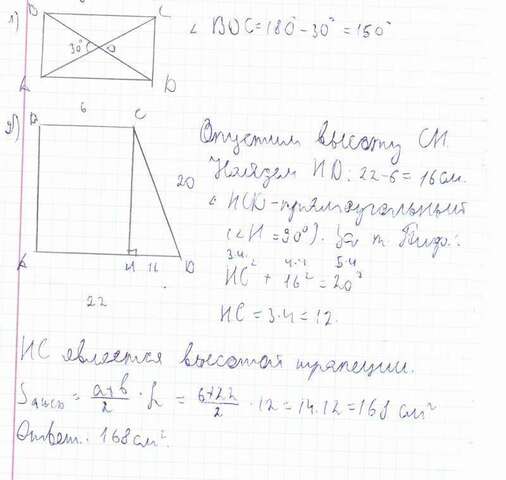 1)
B C
30° O
A D
∠ BOC = 180° - 30° = 150°
2)
B 6 C
20
A H 16 D
22
Опустим высоту CH.
Найдем HD: 22-6 = 16 см.
HCD - прямоугольный
(∠H = 90°). За т. Пифа.:
3·4 4·4 5·4
HC² + 16² = 20²
HC = 3·4 = 12.
HC является высотой трапеции.
S ABCD = a+b/2 · h = 6+22/2 · 12 = 14·12 = 168 см²
Ответ: 168 см².